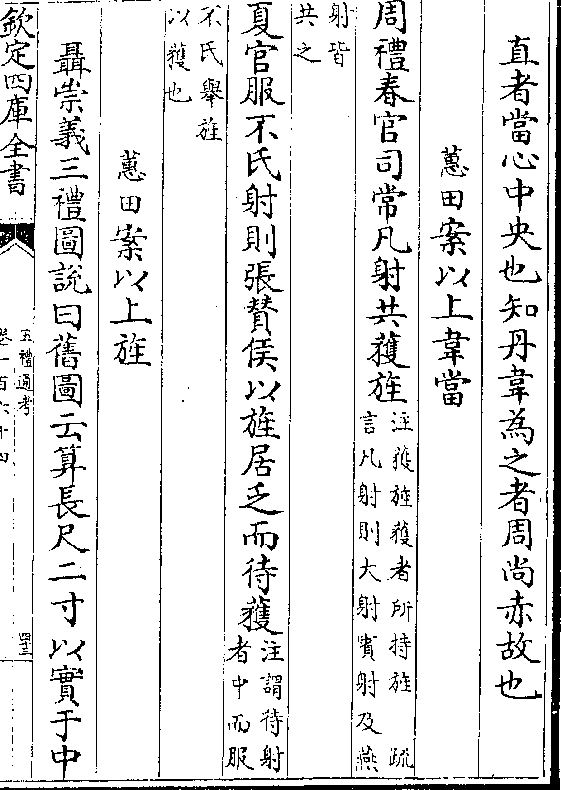 直者當心中央也知丹韋為之者周尚赤故也
蕙田案以上韋當
周禮春官司常凡射共獲旌注獲旌獲者所持旌　疏
言凡射則大射賓射及燕
射皆
共之
夏官服不氏射則張贊侯以旌居乏而待獲注謂待射
者中而服
不氏舉旌
以獲也
蕙田案以上旌
聶崇義三禮圖說曰舊圖云算長尺二寸以實于中
欽定四庫全書
五禮通考
卷一百六十四
四十三